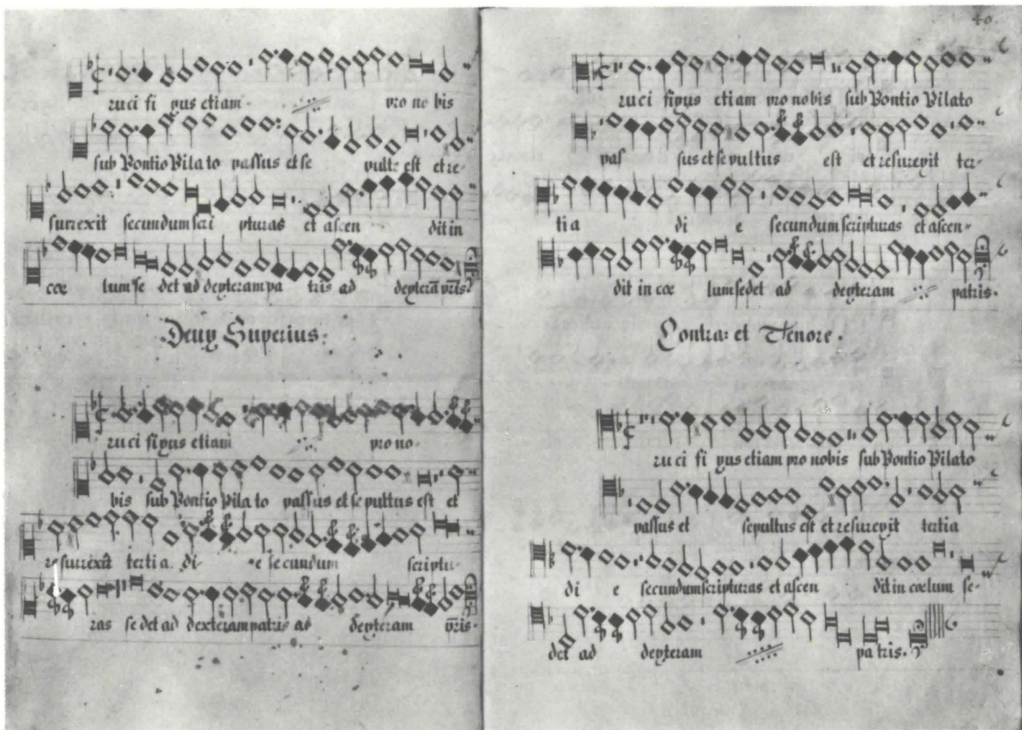 ruci fi pus etiam pro no bis
sub Pontio Pila to passus et se pultus est et re-
surrexit secundum scri pturas et ascen dit in
coe lum se det ad dexteram pa tris ad dexterā
Deux Superius.
ruci fipus etiam pro no-
bis sub Pontio Pila to passus et se pultus est et
resurrexit tertia di e se cundum scriptu-
ras se det ad dexteram patris ad dexteram
40.
ruci fipus etiam pro nobis sub Pontio Pilato
pas sus et se pultus est et resurexit ter-
tia di e secundum scripturas et ascen-
dit in coe lum sedet ad dexteram patris.
Contra: et Tenore.
ruci fi pus etiam pro nobis sub Pontio Pilato
passus et sepultus est et resurexit tertia
di e secundum scripturas et ascen dit in coelum se-
det ad dexteram pa tris.